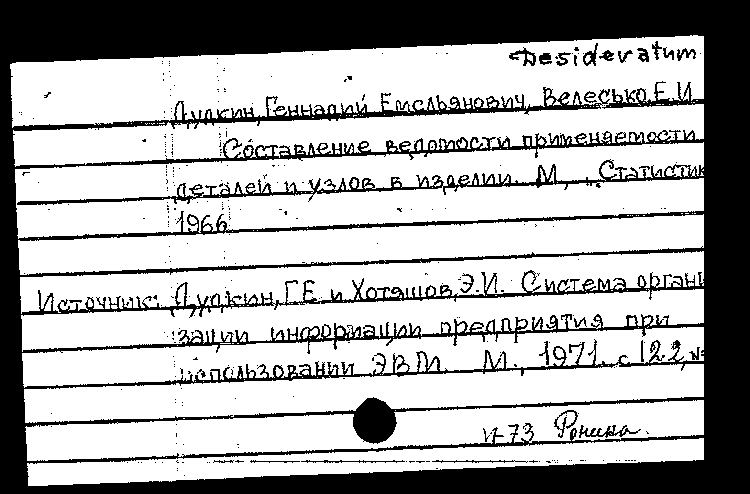 Desideratum
Дудкин, Геннадий Емельянович, Велесько, Е.И
Составление ведомости применяемости
деталей и узлов в изделии. М., „Статистик
1966
Источник: Дудкин, Г.Е и Хотяшов, Э.И. Система органи
зации информации предприятия при
использовании ЭВМ. М., 1971. с 122, №
И-73 Ронина.